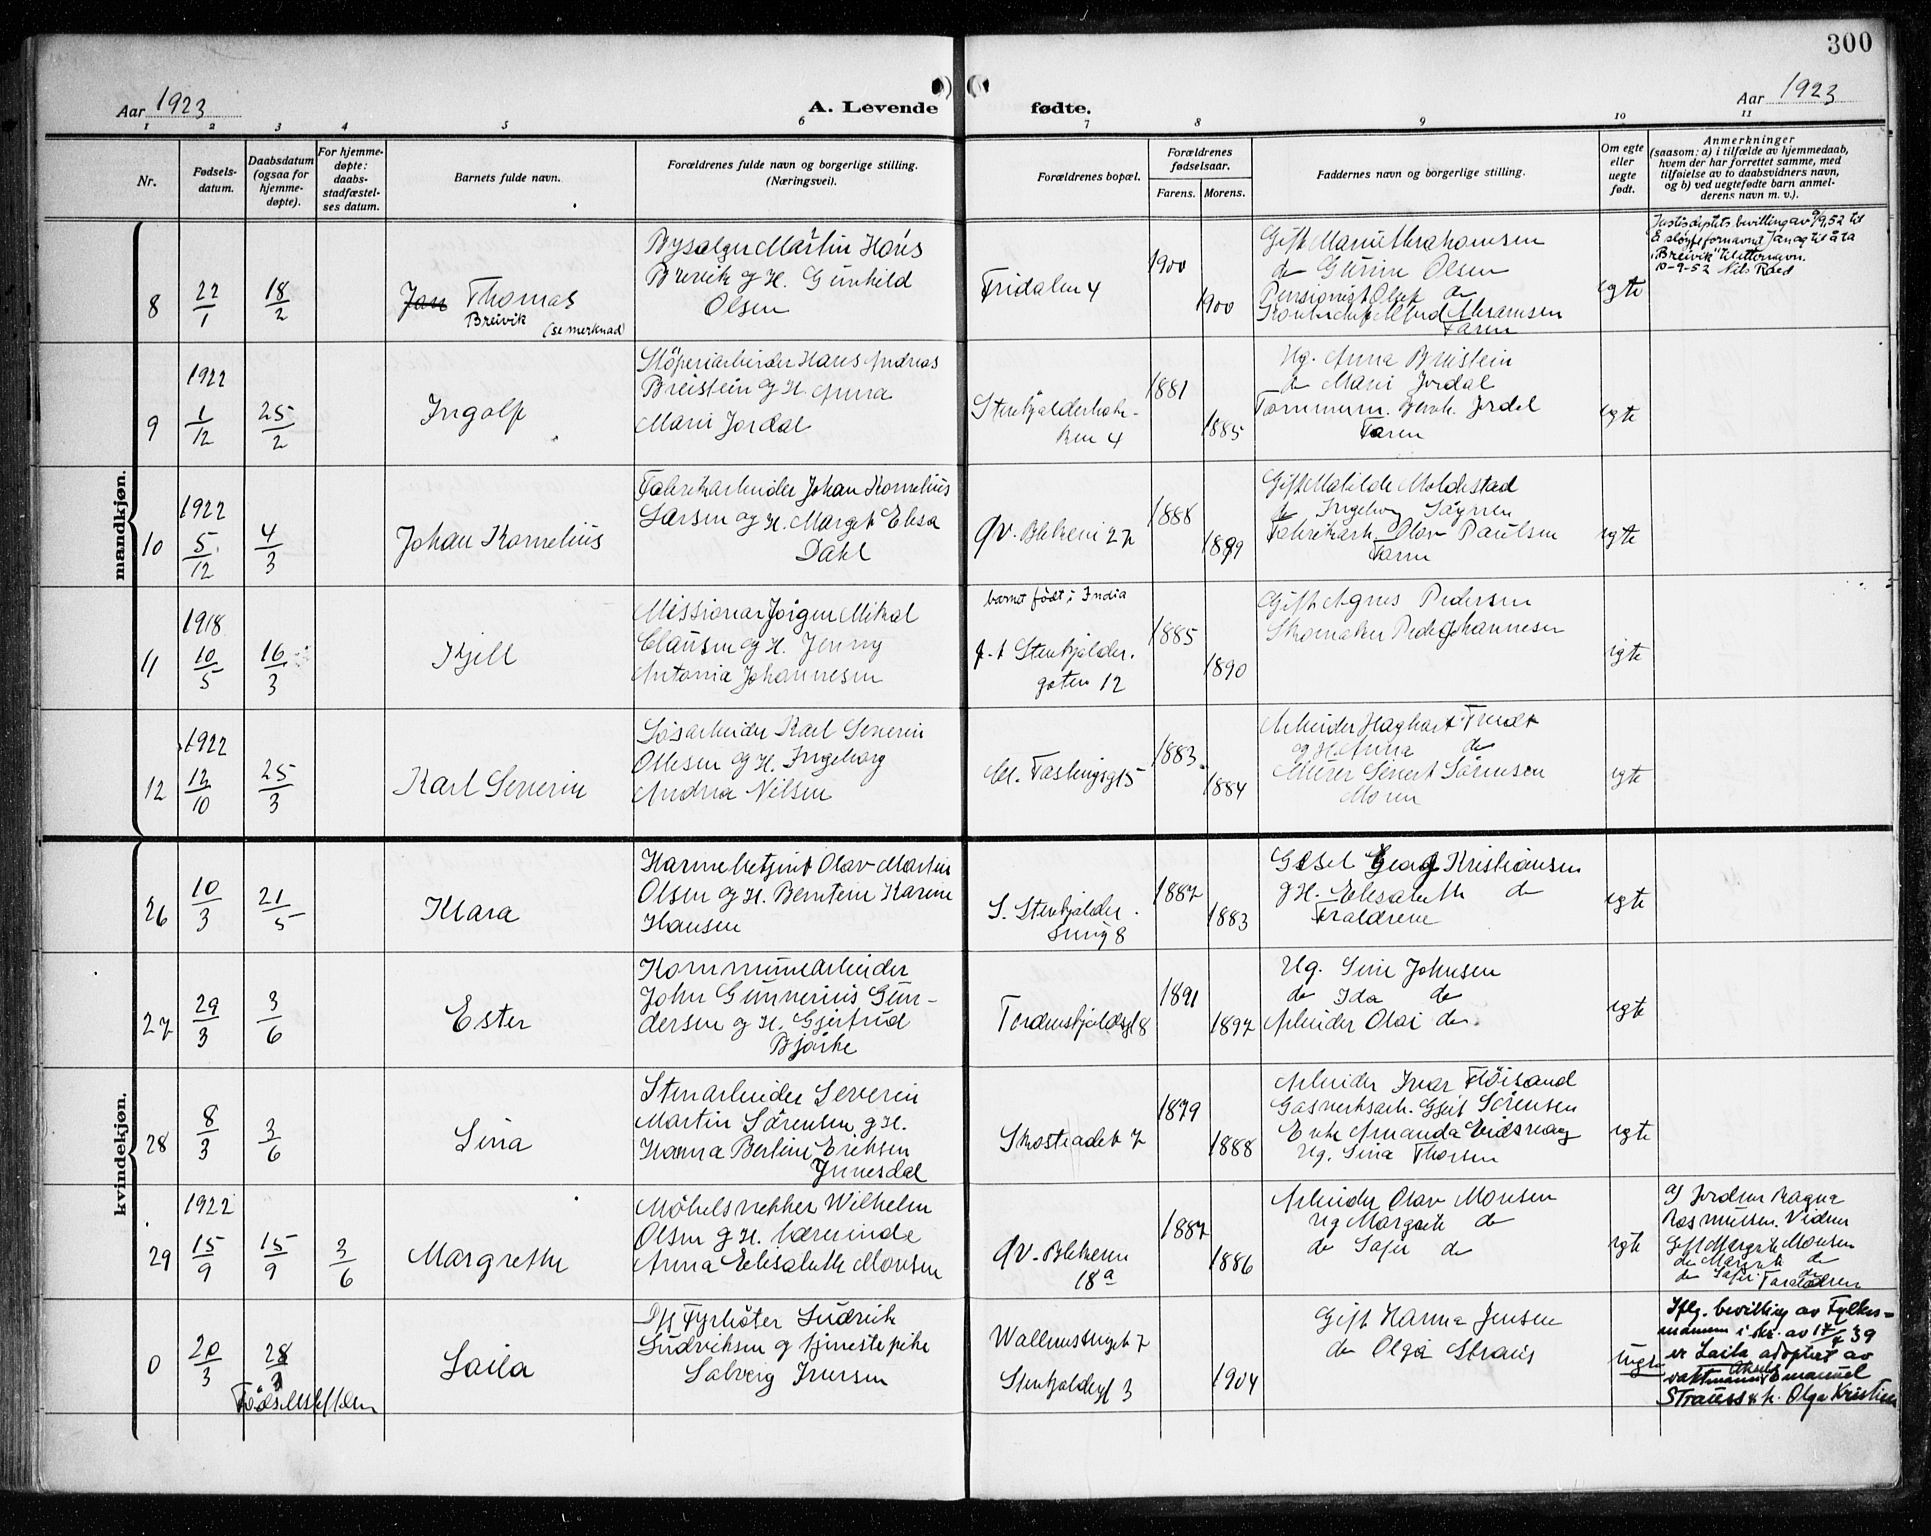 300
Aar 1923
A. Levende
fødte.
Aar 1923
1 2 3 4 5 6 7 8 9 10 11
Nr.
Fødsels-
datum.
Daabsdatum
(ogsaa for
hjemme-
døpte).
For hjemme-
døpte:
daabs-
stadfæstel-
ses datum.
Barnets fulde navn.
Forældrenes fulde navn og borgerlige stilling.
(Næringsvei).
Forældrenes bopæl.
Forældrenes
fødselsaar.
Farens. Morens.
Faddernes navn og borgerlige stilling.
Om egte
eller
uegte
født.
Anmerkninger
(saasom: a) i tilfælde av hjemmedaab,
hvem der har forrettet samme, med
tilføielse av to daabsvidners navn,
og b) ved uegtefødte barn anmel-
derens navn m. v.).
mandkjøn.
8
22/1
18/2
Jan Thomas
Breivik (se merknad)
Martin Hans
Breivik og H. Gunhild
Olsen
Fridalen 4
1900
1900
Gift Marie Abrahamsen
do Gurine Olsen
Pensionist Olsen do
Abramsen
Faren
egte
Justisdeptets bevilling av 9/9.52 til
å sløyfe fornavnet Jan og til å ta
"Breivik" til etternavn.
10-9-52 Nils Raed
9
1922
1/12
25/2
Ingolf
Støperiarbeider Hans Andreas
Breistein og H. Anna
Marie Jordal
Stenkjelderbak-
ken 4
1881
1885
Ug. Anna Breistein
do Marie Jordal
Tømmerm. Jordal
Faren
egte
10
1922
5/12
4/3
Johan Kornelius
Fabrikarbeider Johan Kornelius
Larsen og H. Marget Elisa
Dahl
Øv. Blekevei 27
1888
1899
Gift Matilde Moldestad
do Ingeborg
Fabrikarb. Olav Paulsen
Faren
egte
11
1918
10/5
16/3
Kjell
Missionær Jørgen Mikal
Clausen og H. Jenny
Antonia Johannesen
barnet født i India
p.t Stenkjelder-
gaten 12
1885
1890
Gift Agnes Pedersen
Skomaker Peder Johannesen
egte
12
1922
12/10
25/3
Karl Severin
Løsarbeider Karl Severin
Olsen og H. Ingeborg
Andrea Nilsen
1883
1884
Arbeider
og H. Anna do
Murer Sivert Sørensen
Moren
egte
kvindekjøn.
26
10/3
21/5
Klara
Olav Martin
Olsen og H. Berntine Karine
Hansen
S. Stenkjelder-
smug 8
1887
1883
Georg Kristiansen
og H. Elisabeth do
Forældrene
egte
27
29/3
3/6
Ester
Kommunearbeider
John Gunnerius Gun-
dersen og H. Gjertrud
Bjørke
Tordenskjoldsgt 8
1891
1897
Ug. Sine Johnsen
do Ida do
Arbeider Olai do
egte
28
8/3
3/6
Sina
Stenarbeider Severin
Martin Sørensen og H.
Hanna Bertine Eriksen
Jinnesdal
Skostrædet 7
1879
1888
Arbeider Ivar Fløisand
Gasverksarb. Gjert Sørensen
Enke Amanda Eidsvaag
Ug. Sina Thorsen
egte
29
1922
15/9
15/9
3/6
Margrethe
Møbelsnekker Wilhelm
Olsen og H. lærerinde
Anna Elisabeth Monsen
Øv. Blekevei
18a
1887
1886
Arbeider Olav Monsen
Ug Margrete do
do Sofie do
egte
a) Jordmor Ragna
Rasmussen. Vidner
Gift Margrete Monsen
do Margrete do
do Sofie do
Forældrene
0
20/3
28/3
Fødselsstiftelsen
Laila
Fyrbøter Ludvik
Ludviksen og tjenestepike
Solveig Iversen
Stenkjeldergt 3
1904
Gift Hanna Jensen
do Olga Straus
uegte
Iflg. bevilling av Fylkes-
mannen i skr. av 17/4 39
er Laila adoptert av
vaktmann Emanuel
Strauss & h. Olga Kristine